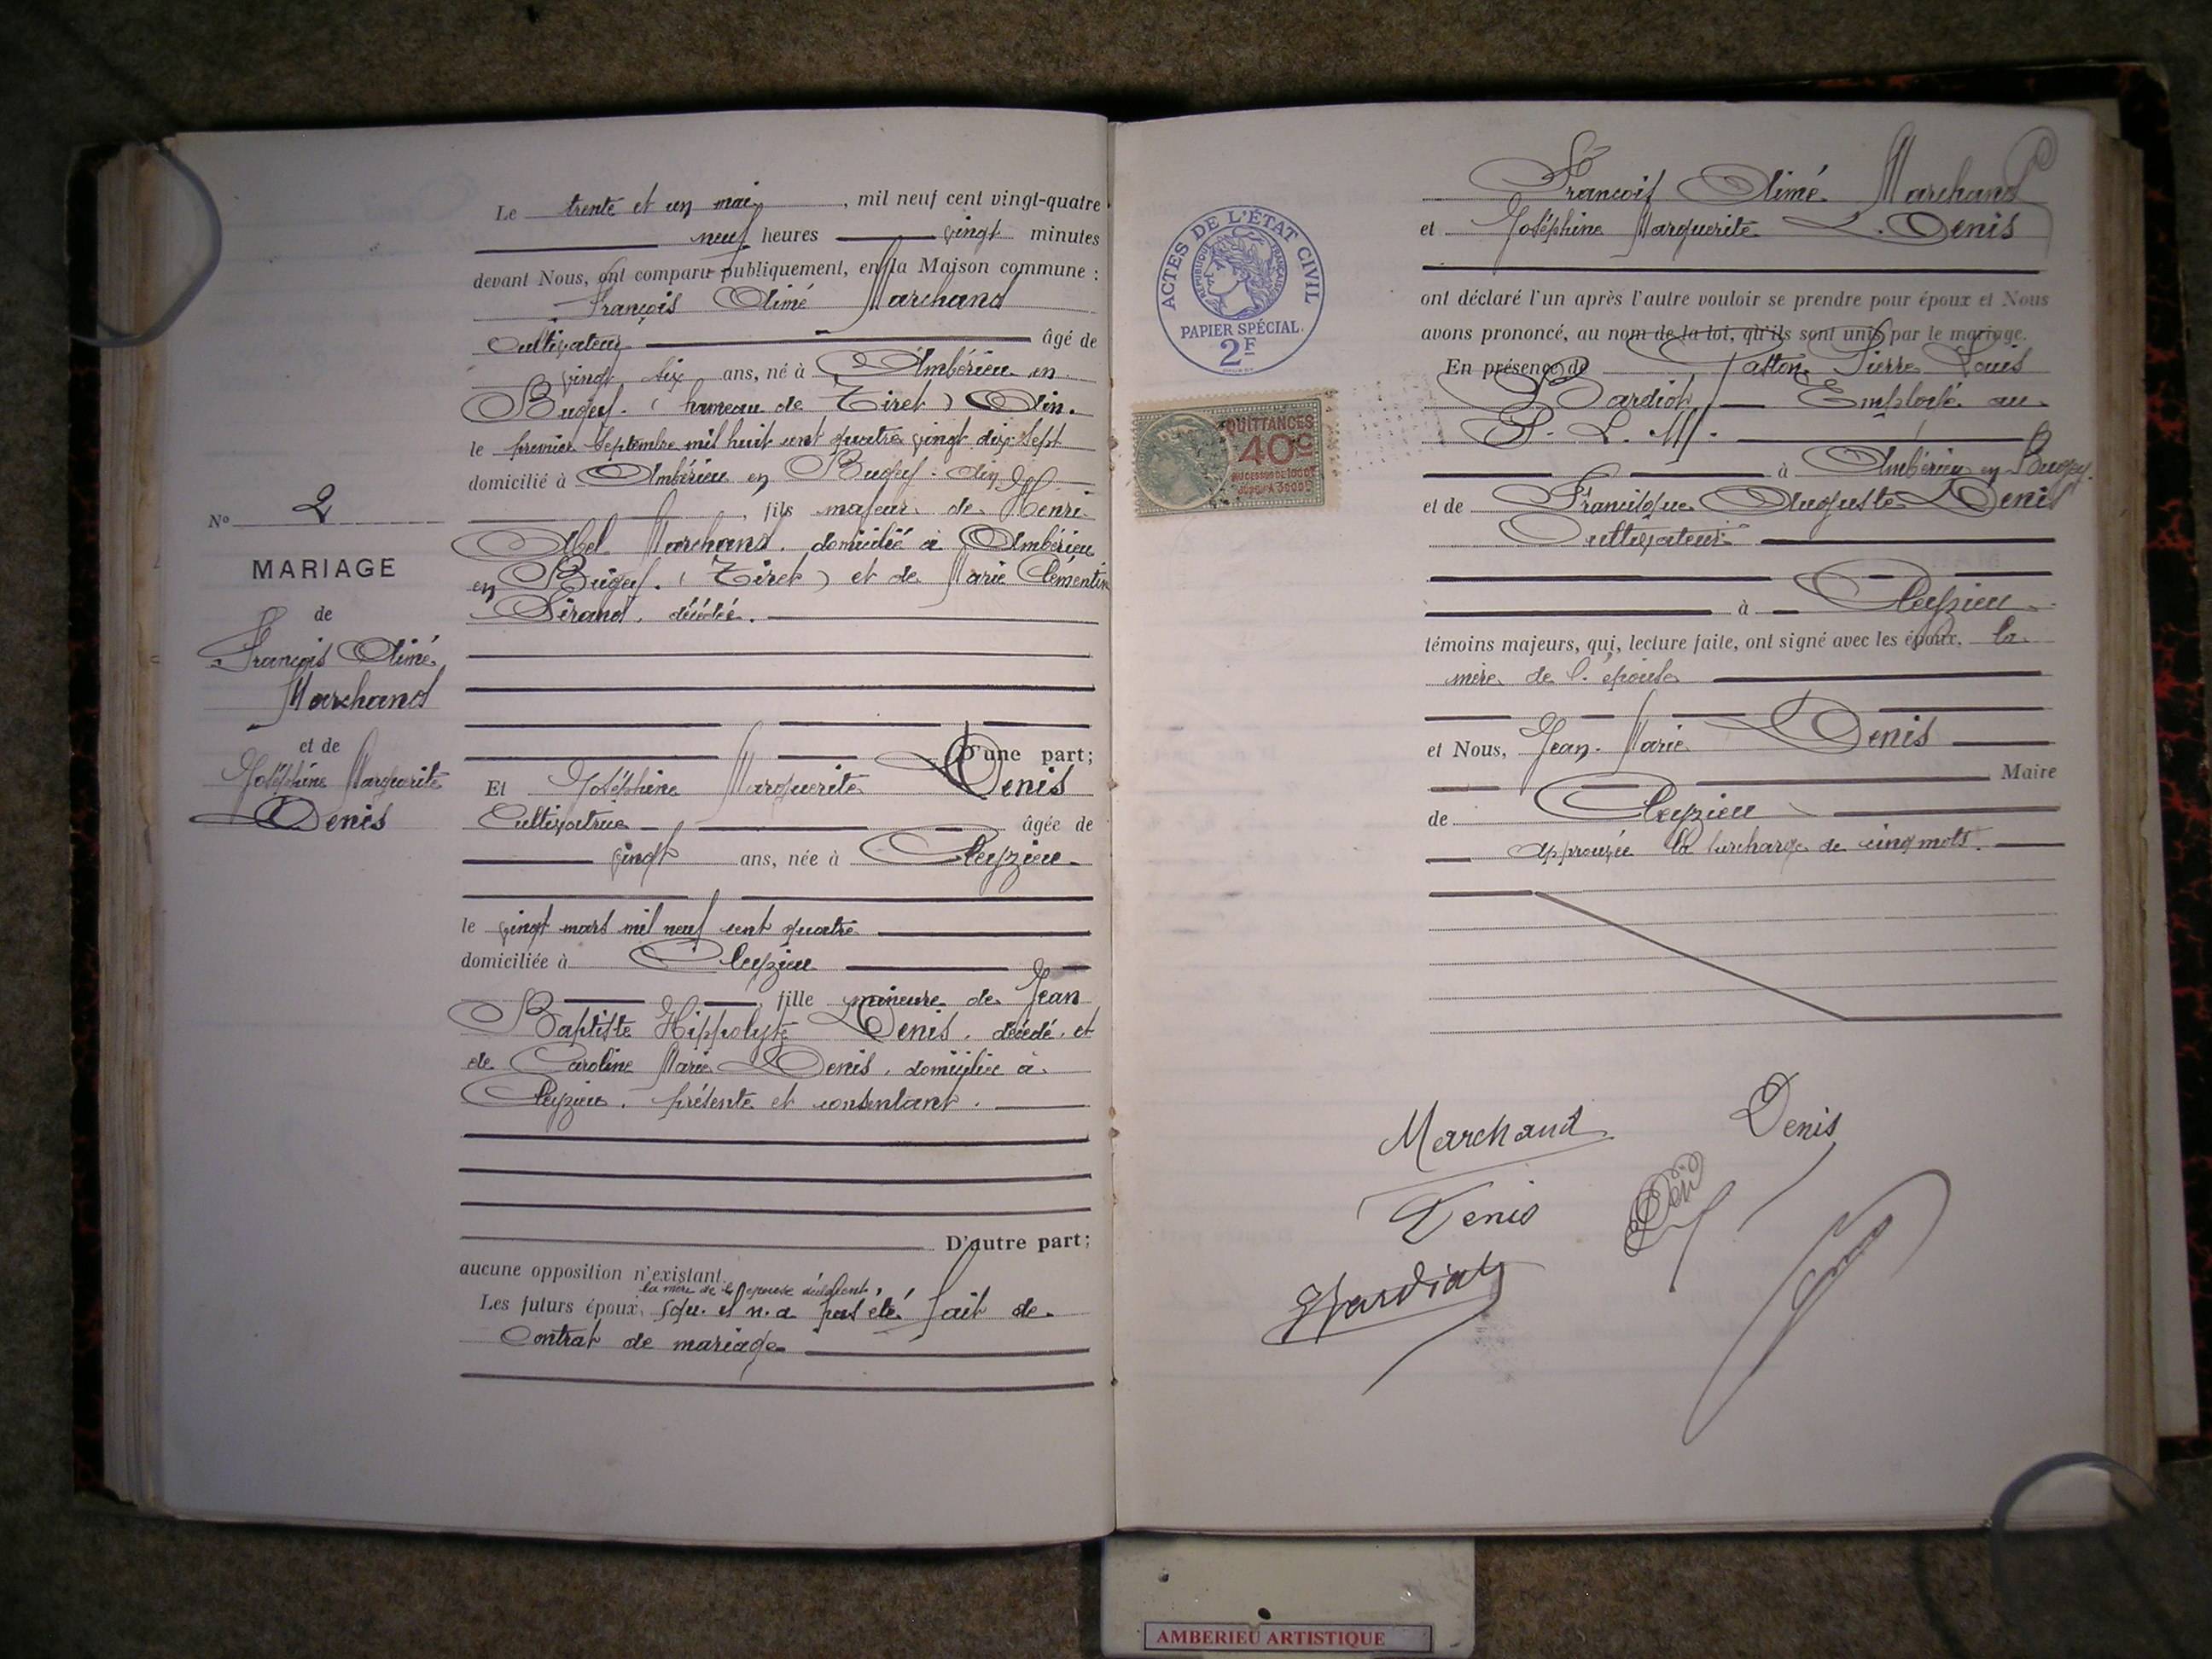 Le trente et un mai, mil neuf cent vingt-quatre
neuf heures vingt minutes
devant Nous, ont comparu publiquement, en la Maison commune :
François Aimé Marchand
Cultivateur âgé de
vingt six ans, né à Ambérieu en
Bugey. (hameau de Tiret) Ain.
le premier Septembre mil huit cent quatre vingt dix-sept
domicilié à Ambérieu en Bugey - Ain
, fils majeur de Henri
Abel Marchand, domicilié à Ambérieu
en Bugey. (Tiret) et de Marie Clémentine
Sérand, décédée.
D'une part;
Et Joséphine Marguerite Denis
Cultivatrice âgée de
vingt ans, née à Cleyzieu
le vingt mars mil neuf cent quatre
domiciliée à Cleyzieu
, fille mineure de Jean
Baptiste Hippolyte Denis, décédé, et
de Caroline Marie Denis, domiciliée à
Cleyzieu, présente et consentant.
D'autre part;
aucune opposition n'existant.
la mère de l'épouse déclarent,
Les futurs époux, qu'il n'a pas été fait de
Contrat de mariage
No 2
MARIAGE
de
François Aimé
Marchand
et de
Joséphine Marguerite
Denis
ACTES DE L'ÉTAT CIVIL
RÉPUBLIQUE FRANÇAISE
PAPIER SPÉCIAL.
2F
QUITTANCES
40c
François Aimé Marchand
et Joséphine Marguerite Denis
ont déclaré l'un après l'autre vouloir se prendre pour époux et Nous
avons prononcé, au nom de la loi, qu'ils sont unis par le mariage.
En présence de Gaston Pierre Louis
Bardiot Employé au
P. L. M.
à Ambérieu en Bugey.
et de Francisque Auguste Denis
Cultivateur
à Cleyzieu
témoins majeurs, qui, lecture faite, ont signé avec les époux, la
mère de l'épouse
et Nous, Jean-Marie Denis
Maire
de Cleyzieu
approuvée la surcharge de cinq mots.
Marchand
Denis
Denis
AMBERIEU ARTISTIQUE